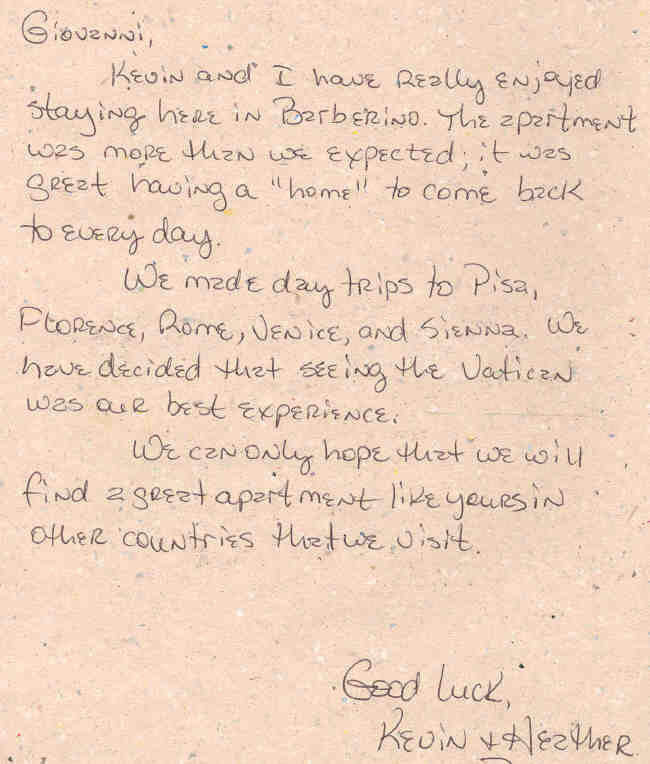 Giovanni,
Kevin and I have really enjoyed
staying here in Barberino. The apartment
was more than we expected; it was
great having a "home" to come back
to every day.
We made day trips to Pisa,
Florence, Rome, Venice, and Sienna. We
have decided that seeing the Vatican
was our best experience.
We can only hope that we will
find a great apartment like yours in
other countries that we visit.
Good luck,
Kevin + Heather